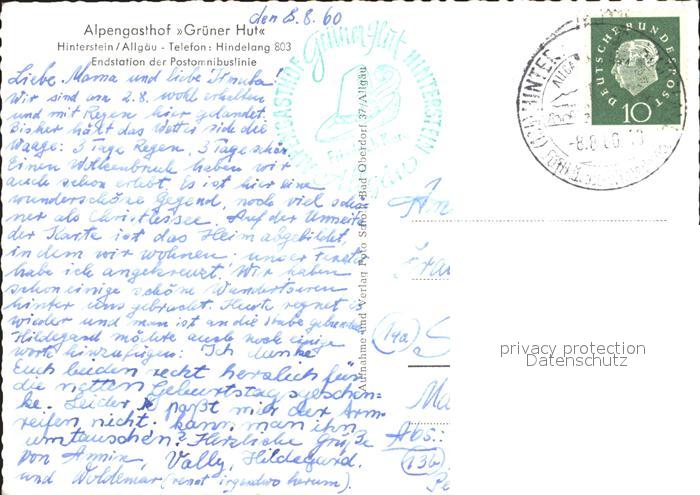 den 8.8.60
Alpengasthof »Grüner Hut«
Hinterstein/Allgäu - Telefon: Hindelang 803
Endstation der Postomnibuslinie
Liebe Mama und liebe
Wir sind am 2.8. wohl erhalten
und mit Regen hier gelandet.
Bisher hält das Wetter sich die
Waage: 3 Tage Regen, 3 Tage schön.
Einen Wolkenbruch haben wir
auch schon erlebt. Es ist hier eine
wunderschöne Gegend, noch viel schö-
ner als Christlessee. Auf der Umseite
der Karte ist das Heim abgebildet,
in dem wir wohnen; unser Fenster
habe ich angekreuzt. Wir haben
schon einige schöne Wandertouren
hinter uns gebracht. Heute regnet es
wieder und man ist an die Stube gebunden.
Hildegard möchte auch noch einige
Worte hinzufügen: Ich danke
Euch beiden recht herzlich für
die netten Geburtstagsgeschen-
ke. Leider paßt mir der Arm-
reifen nicht. Kann man ihn
umtauschen? Herzliche Grüße
von Armin, Vally, Hildegard.
und Woldemar (rennt irgendwo herum).
ALPENGASTHOF Grüner Hut HINTERSTEIN
Aufnahme und Verlag Foto Bad Oberdorf 37/Allgäu
DEUTSCHE BUNDESPOST
10
HINTERSTEIN
-8.8.60
An
Frau
(14a)
Ma
Abs:
(13b)
privacy protection
Datenschutz